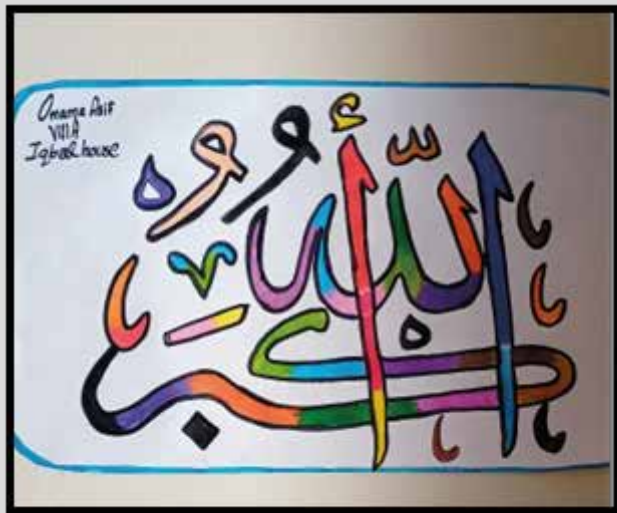 Omama Asif
VIII A
Iqbal house
الله أكبر